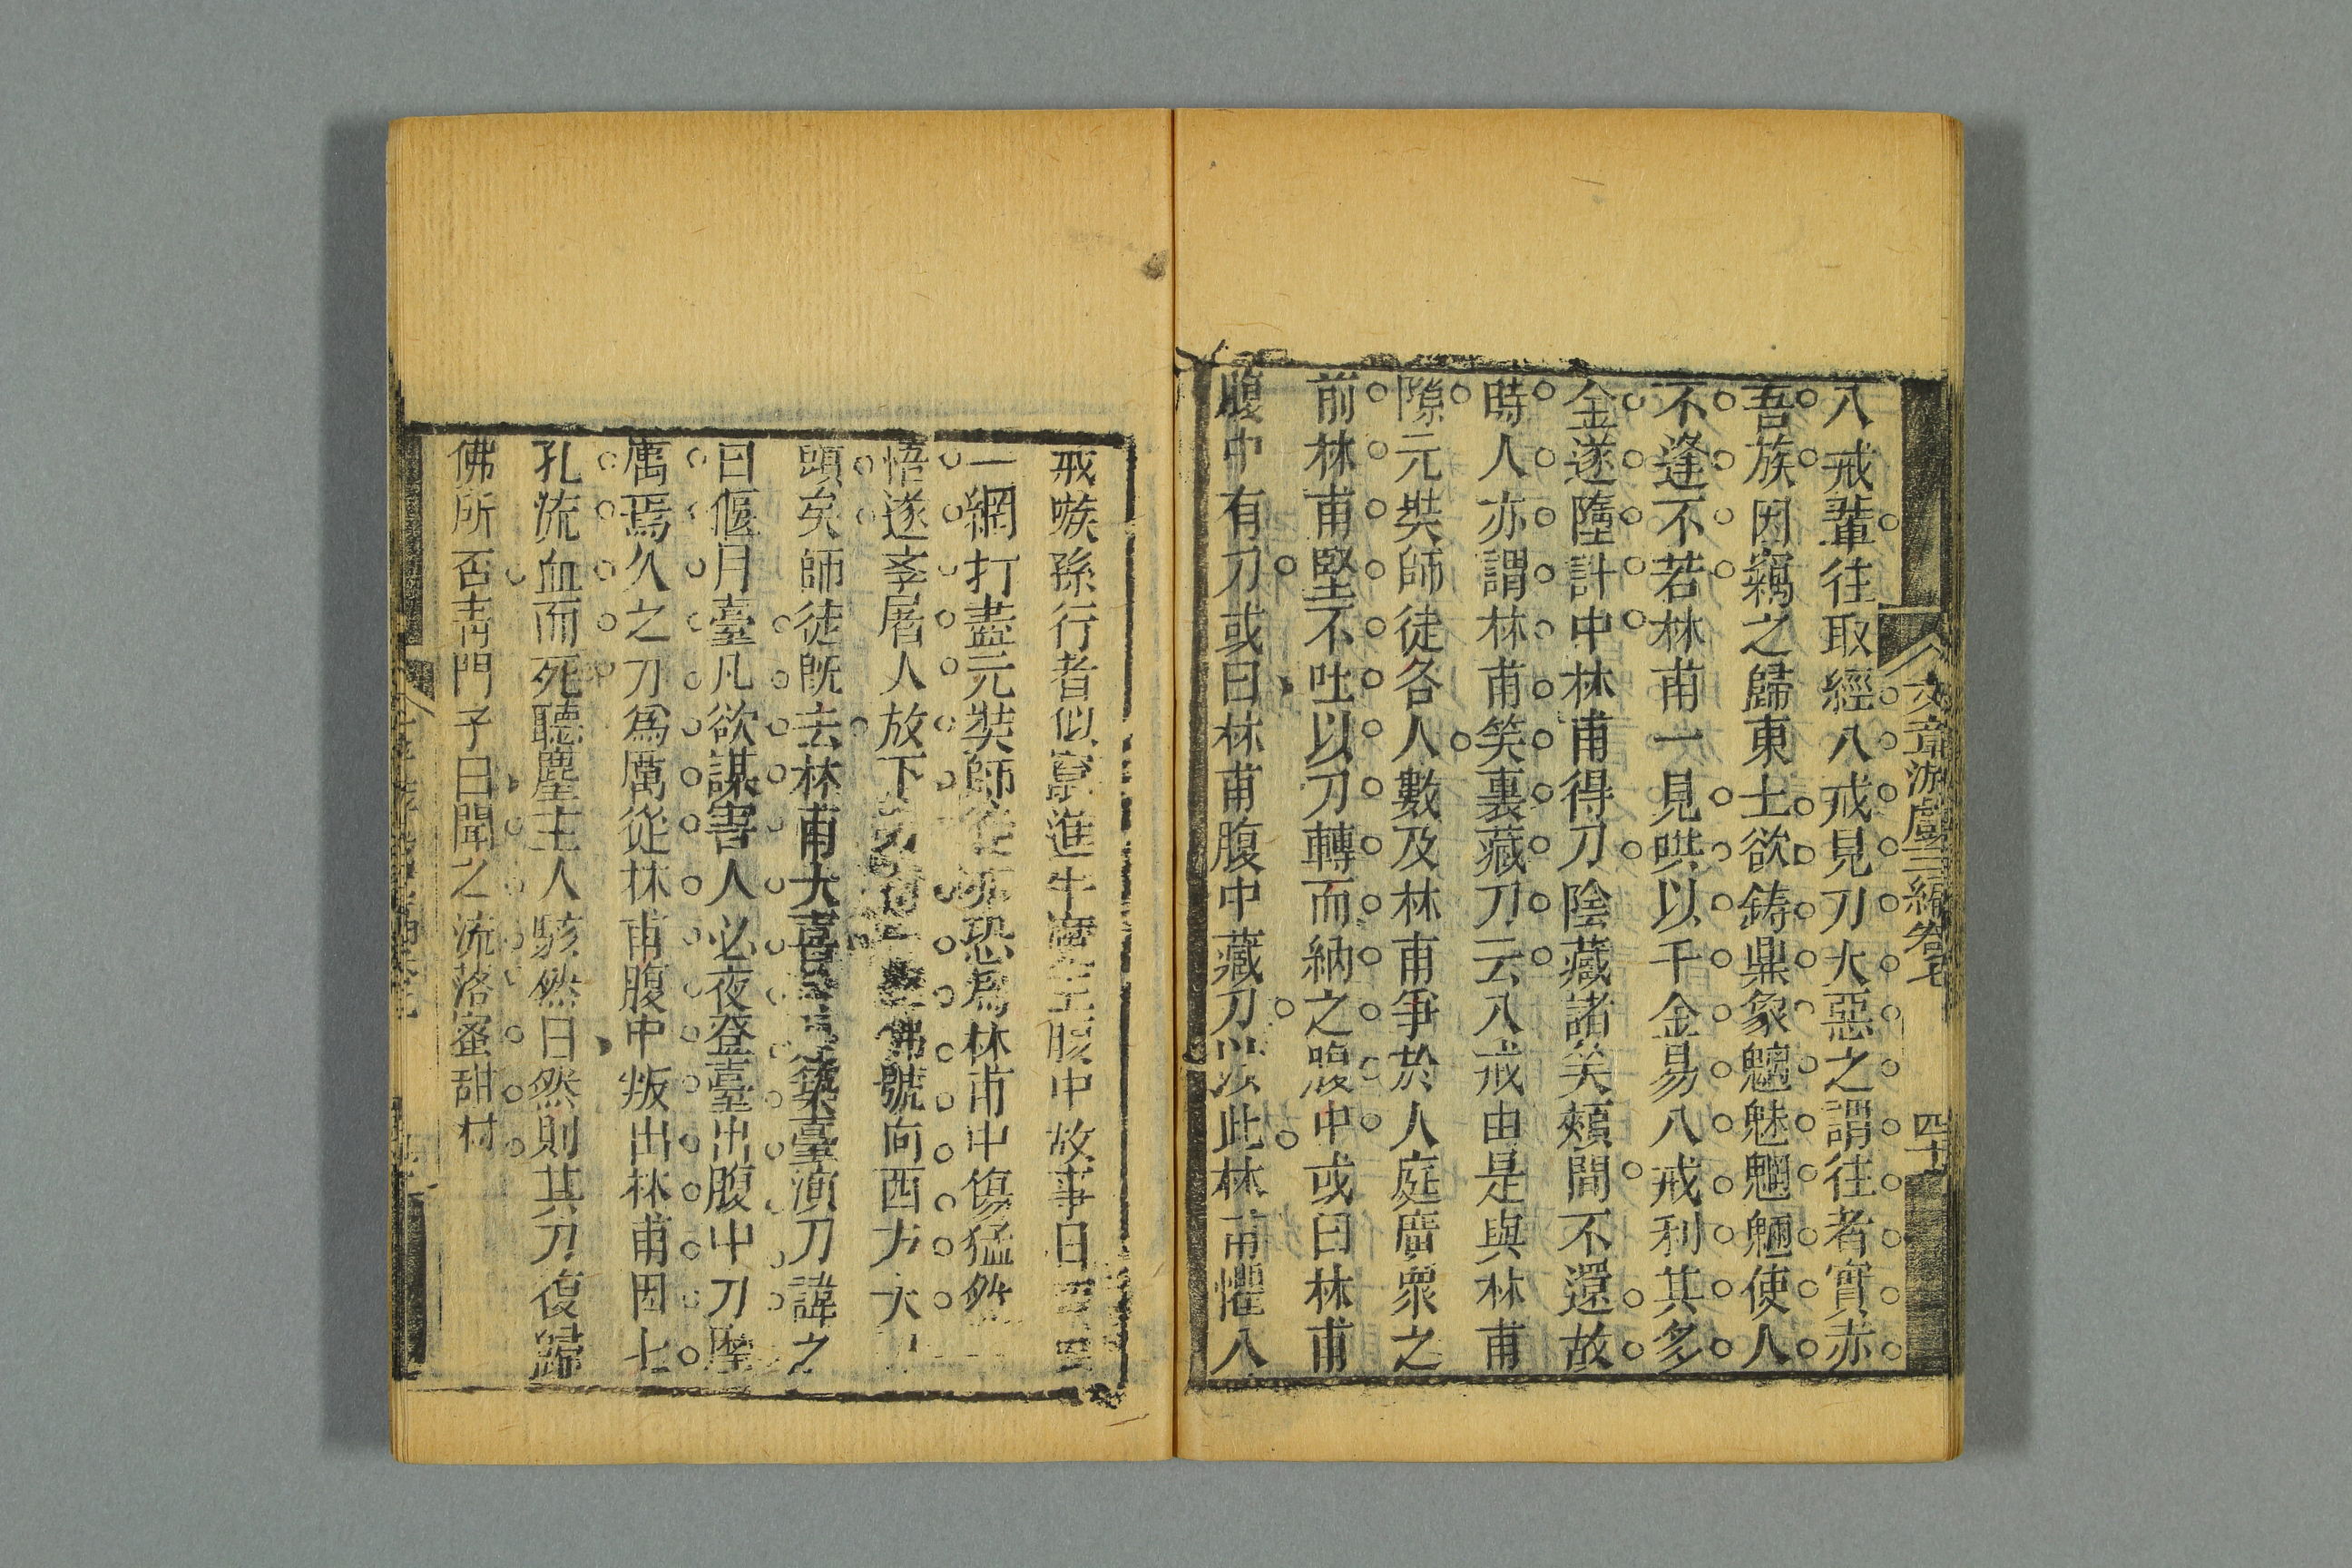 八戒輩往取經八戒見刀大惡之謂往者實赤
吾族因竊之歸東土欲鋳鼎象魑魅魍魎使人
不逢不若林甫一見哄以千金易八戒利其多
金遂墮計中林甫得刀陰藏諸笑頰間不還故
時人亦謂林甫笑裏藏刀云八戒由是與林甫
隙元奘師徒各人數及林甫爭於人庭廣衆之
前林甫堅不吐以刀轉而納之腹中或曰林甫
腹中有刀或曰林甫腹中藏刀以此林甫懼八
文章游戲三編卷七
四十
戒嗾孫行者似竄進牛魔王腹中故事日
一網打盡元奘師徒亦恐為林甫中傷猛然
悟遂孝屠人放下佛號向西方大
頭矣師徒既去林甫大喜築臺演刀諱之
曰偃月臺凡欲謀害人必夜登臺出腹中刀堅
厲焉久之刀為厲從林甫腹中叛出林甫因七
孔流血而死聽塵主人駭然曰然則其刀復歸
佛所否青門子曰聞之流落蜜甜村